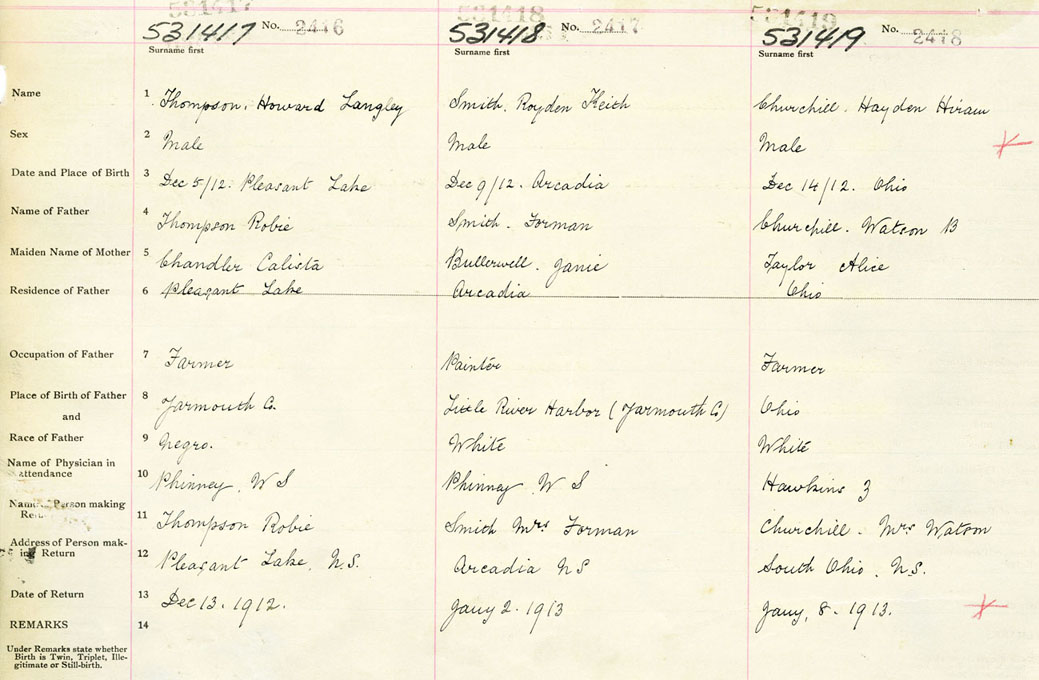 531417 531418 531419
531417 No. 2416 531418 No. 2417 531419 No. 2418
Surname first Surname first Surname first
Name 1 Thompson, Howard Langley Smith. Royden Keith Churchill. Hayden Hiram
Sex 2 Male Male Male
Date and Place of Birth 3 Dec 5/12. Pleasant Lake Dec 9/12. Arcadia Dec 14/12. Ohio
Name of Father 4 Thompson Robie Smith. Forman Churchill. Watson B
Maiden Name of Mother 5 Chandler Calista Butlerwell. Janie Taylor Alice
Residence of Father 6 Pleasant Lake Arcadia Ohio
Occupation of Father 7 Farmer Painter Farmer
Place of Birth of Father 8 Yarmouth Co. Little River Harbor (Yarmouth Co) Ohio
and
Race of Father 9 Negro. White White
Name of Physician in
attendance 10 Phinney. W S Phinney W S Hawkins
Name of Person making
Return 11 Thompson Robie Smith Mrs Forman Churchill. Mrs Watson
Address of Person mak-
ing Return 12 Pleasant Lake, N.S. Arcadia N S South Ohio. N.S.
Date of Return 13 Dec 13. 1912. Jany 2. 1913 Jany, 8. 1913.
REMARKS 14
Under Remarks state whether
Birth is Twin, Triplet, Ille-
gitimate or Still-birth.